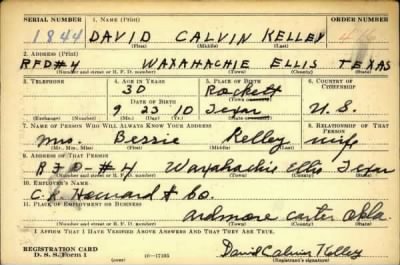 SERIAL NUMBER 1. NAME (Print) ORDER NUMBER
1844 DAVID CALVIN KELLEY
(First) (Middle) (Last)
2. ADDRESS (Print)
RFD#4 WAXAHACHIE ELLIS TEXAS
(Number and street or R. F. D. number) (Town) (County) (State)
3. TELEPHONE 4. AGE IN YEARS 5. PLACE OF BIRTH 6. COUNTRY OF CITIZENSHIP
30 Rockett
DATE OF BIRTH (Town or county)
9 23 '10 Texas U.S.
(Exchange) (Number) (Mo.) (Day) (Yr.) (State or country)
7. NAME OF PERSON WHO WILL ALWAYS KNOW YOUR ADDRESS 8. RELATIONSHIP OF THAT PERSON
Mrs. Bessie Kelley wife
(Mr., Mrs., Miss) (First) (Middle) (Last)
9. ADDRESS OF THAT PERSON
RFD-#4 Waxahachie Ellis Texas
(Number and street or R. F. D. number) (Town) (County) (State)
10. EMPLOYER'S NAME
Howard & Co.
11. PLACE OF EMPLOYMENT OR BUSINESS
Ardmore Carter Okla
(Number and street or R. F. D. number) (Town) (County) (State)
I AFFIRM THAT I HAVE VERIFIED ABOVE ANSWERS AND THAT THEY ARE TRUE.
REGISTRATION CARD
D. S. S. Form 1 (over) 16—17105 David Calvin Kelley
(Registrant's signature)